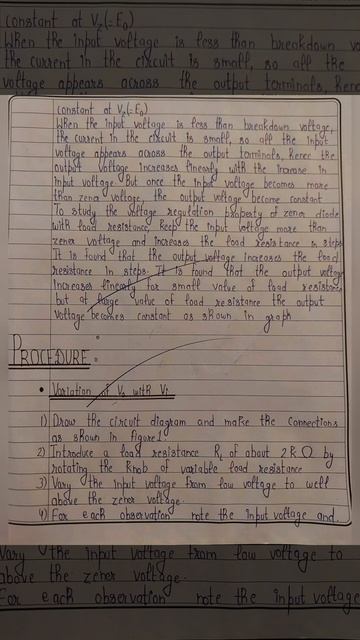 constant at Vz(=E0)
When the input voltage is less than breakdown
the current in the circuit is small, so all the
voltage appears across the output terminals, hence
constant at Vz(=E0)
When the input voltage is less than breakdown voltage,
the current in the circuit is small, so all the input
voltage appears across the output terminals, hence the
output voltage increases linearly with the increase in
input voltage. But once the input voltage becomes more
than zener voltage, the output voltage become constant.
To study the voltage regulation property of zener diode
with load resistance, keep the input voltage more than
zener voltage and increases the load resistance in steps
It is found that the output voltage increases the load
resistance in steps. It is found that the output voltage
increases linearly for small value of load resistance
but at large value of load resistance the output
voltage becomes constant as shown in graph
PROCEDURE
• Variation of Vo with Vi
1) Draw the circuit diagram and make the connections
as shown in Figure 1
2) Introduce a load resistance RL of about 2KΩ by
rotating the knob of variable load resistance
3) Vary the input voltage from low voltage to well
above the zener voltage.
4) For each observation note the input voltage and
Vary the input voltage from low voltage to
above the zener voltage.
For each observation note the input voltage